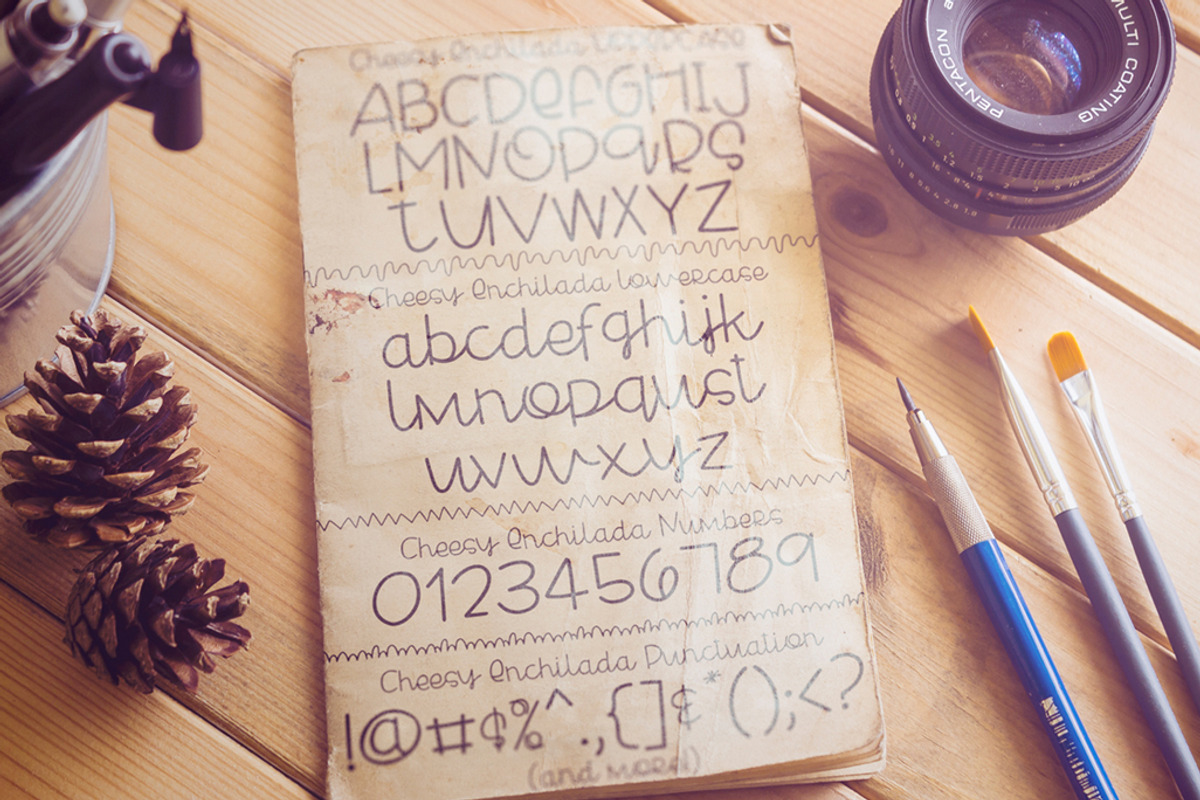 Cheesy Enchilada Uppercase
ABCDEFGHIJ
LMNOPQRS
TUVWXYZ
Cheesy Enchilada Lowercase
abcdefghijk
lmnopqrst
uvwxyz
Cheesy Enchilada Numbers
0123456789
Cheesy Enchilada Punctuation
!@#$%^.,{]&*();<?
(and more)
PENTACON
MULTI COATING